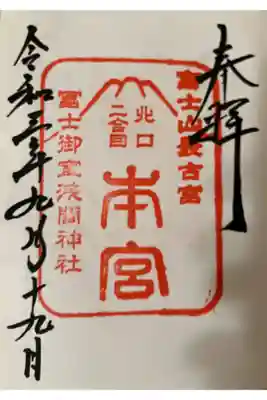 奉拝
富士山最古宮
北口
二合目
本宮
冨士御室浅間神社
令和三年九月十九日